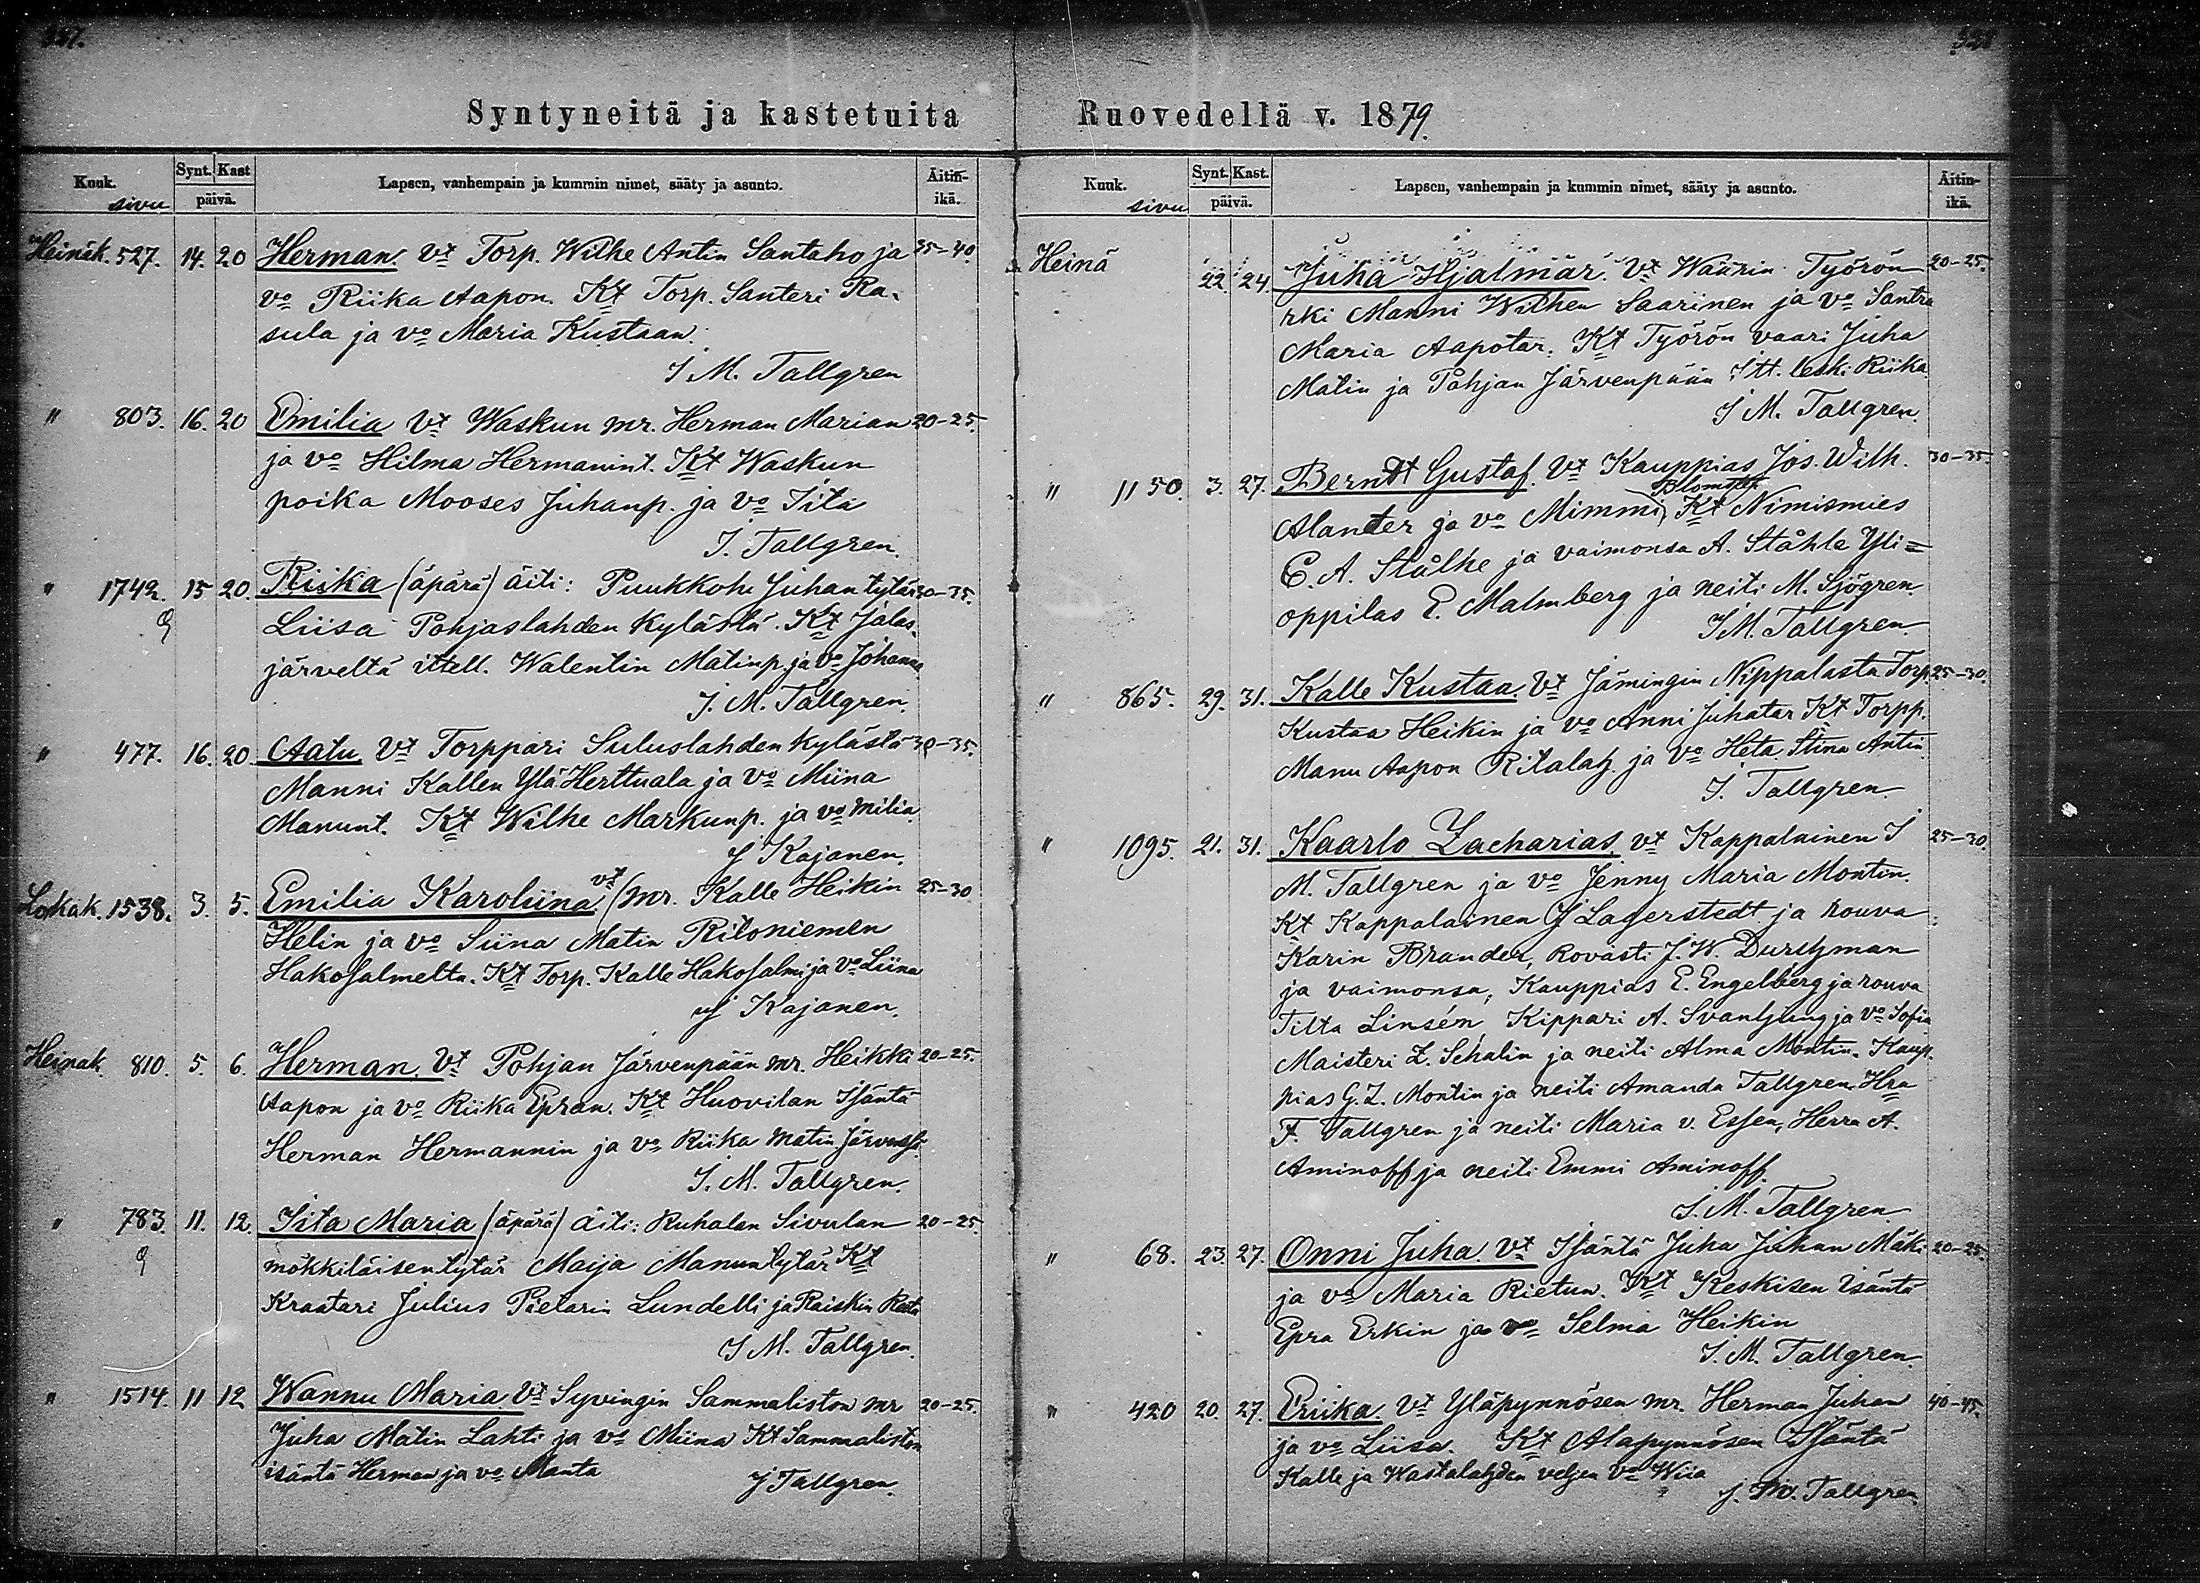 327.
Syntyneitä ja kastetuita
Kuuk. sivu Synt. Kast päivä. Lapsen, vanhempain ja kummin nimet, sääty ja asunto. Äitin-ikä.
Heinäk. 527. 14. 20 Herman. Vt Torp. Wilhe Antin Santaho ja 35-40.
vo Riika Aapon. Kt Torp. Santeri Ra-
sula ja vo Maria Kustaan.
I M. Tallgren
" 803. 16. 20 Emilia Vt Waskun mr. Herman Marian 20-25.
ja vo Hilma Hermannint. Kt Waskun
poika Mooses Juhanp. ja vo Iita
I. Tallgren.
" 1742. 15 20. Riika (äpärä) äiti: Puukkohe Juhan tytär 30-35.
Liisa Pohjaslahden kylästä. Kt Jalas-
järveltä ittell. Walentin Matinp. ja vo Johanna
I. M. Tallgren.
" 477. 16. 20. Aatu. Vt Torppari Suluslahden kylästä 30-35.
Manni Kallen Ylä Herttuala ja vo Miina
Manunt. Kt Wilhe Markunp. ja vo Milia
J Kajanen.
Lokak. 1538. 3. 5. Emilia Karoliina vt (mr. Kalle Heikin 25-30
Helin ja vo Siina Matin Ritoniemen
Hakosalmelta. Kt Torp. Kalle Hakosalmi ja vo Liina
J Kajanen.
Heinäk. 810. 5. 6. Herman. Vt Pohjan Järvenpään mr. Heikki 20-25.
Aapon ja vo Riika Epran. Kt Huovilan Isäntä
Herman Hermannin ja vo Riika Matin
I. M. Tallgren.
" 783. 11. 12. Iita Maria (äpärä) äiti: Ruhalan Sivulan 20-25.
mökkiläisentytär Maija Manuntytär Kt
Kraatari Julius Pietarin Lundelli ja Raiskin
I M. Tallgren.
" 1514. 11 12 Wannu Maria Vt Syvingin Sammaliston mr 20-25.
Juha Matin Lahti ja vo Miina Kt Sammaliston
isäntä Herman ja vo Manta
J Tallgren.
328
Ruovedellä v. 1879.
Kuuk. sivu Synt. Kast. päivä. Lapsen, vanhempain ja kummin nimet, sääty ja asunto. Äitin-ikä.
Heinä 22. 24. Juha Hjalmar. Vt Waarin Työrön 20-25.
rki Manni Wilhen Saarinen ja vo Santra
Maria Aapotar. Kt Työrön vaari Juha
Matin ja Pohjan Järvenpään Itt. leski Riika.
I M. Tallgren.
" 1150. 3. 27. Berndt Gustaf. Vt Kauppias Jos. Wilh. 30-35.
Alander ja vo Mimmi Kt Nimismies
E. A. Stålhe ja vaimonsa A. Ståhle Yli=
oppilas E. Malmberg ja neiti M. Sjögren.
I M. Tallgren.
" 865. 29. 31. Kalle Kustaa. Vt Jämingin Nippalasta Torp. 25-30.
Kustaa Heikin ja vo Anni Juhatar Kt Torpp.
Manu Aapon Ritalah. ja vo Heta Stina Antin
I. Tallgren.
" 1095. 21. 31. Kaarlo Zacharias. vt Kappalainen I 25-30.
M. Tallgren ja vo Jenny Maria Montin.
Kt Kappalainen J Lagerstedt ja rouva
Karin Brander, Rovasti J. W. Durchman
ja vaimonsa, Kauppias E. Engelberg ja rouva
Tilta Linsén Kippari A. Svanljung ja vo Sofia
Maisteri Z. Schalin ja neiti Alma Montin. Kaup-
pias G. Z. Montin ja neiti Amanda Tallgren Hra
F. Tallgren ja neiti Maria v. Essen, Herra A.
Aminoff ja neiti Emmi Aminoff.
I. M. Tallgren
" 68. 23. 27. Onni Juha. Vt Isäntä Juha Juhan Mäki 20-25.
ja vo Maria Rietun. Kt Keskisen Isäntä
Epra Erkin ja vo Selma Heikin
I. M. Tallgren.
" 420 20. 27. Eriika. Vt Yläpynnösen mr. Herman Juhan 40-45.
ja vo Liisa. Kt Alapynnösen Isäntä
Kalle ja Wastalahden veljen vo Wiia
J. M. Tallgren.